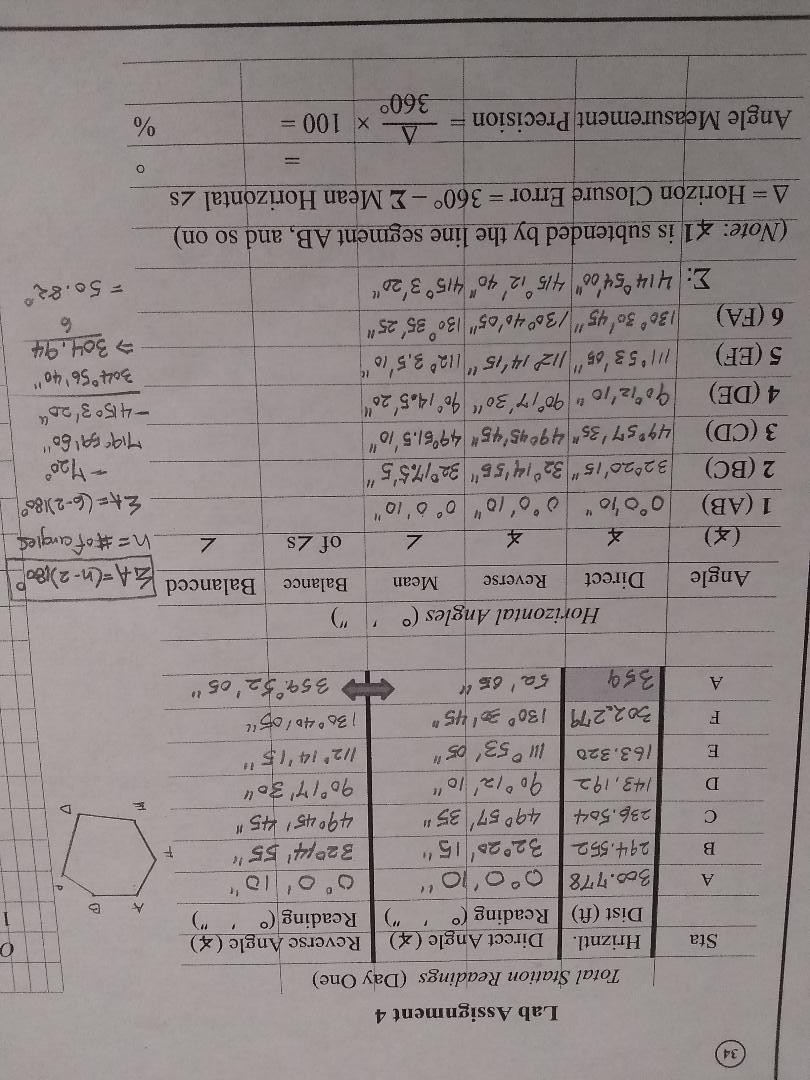 34
Lab Assignment 4
Total Station Readings (Day One)
Sta Hrizntl. Dist (ft) Direct Angle (∡) Reading (° ' ") Reverse Angle (∡) Reading (° ' ")
A 300.778 0° 0' 10" 0° 0' 10"
B 294.552 32° 20' 15" 32° 14' 55"
C 236.504 49° 57' 35" 49° 45' 45"
D 143.192 90° 12' 10" 90° 17' 30"
E 163.320 111° 53' 05" 112° 14' 15"
F 302.279 130° 30' 45" 130° 40' 05"
A 359 52' 05" 359° 52' 05"
A
B
D
E
F
Horizontal Angles (° ' ")
Angle Direct Reverse Mean Balance Balanced
(∡) ∡ ∡ ∠ of ∠s ∠
1 (AB) 0° 0' 10" 0° 0' 10" 0° 0' 10"
2 (BC) 32° 20' 15" 32° 14' 55" 32° 17.5' 5"
3 (CD) 49° 57' 35" 49° 45' 45" 49° 51.5' 10"
4 (DE) 90° 12' 10" 90° 17' 30" 90° 14.5' 20"
5 (EF) 111° 53' 05" 112° 14' 15" 112° 3.5' 10"
6 (FA) 130° 30' 45" 130° 40' 05" 130° 35' 25"
Σ: 414° 54' 00" 415° 12' 40" 415° 3' 20"
ΣA = (n-2)180°
n = # of angles
ΣA = (6-2)180°
= 720°
719° 59' 60"
- 415° 3' 20"
304° 56' 40"
⇒ 304.94
6
= 50.82°
(Note: ∡1 is subtended by the line segment AB, and so on)
Δ = Horizon Closure Error = 360° − Σ Mean Horizontal ∠s
= °
Angle Measurement Precision = Δ / 360° × 100 = %
0
1